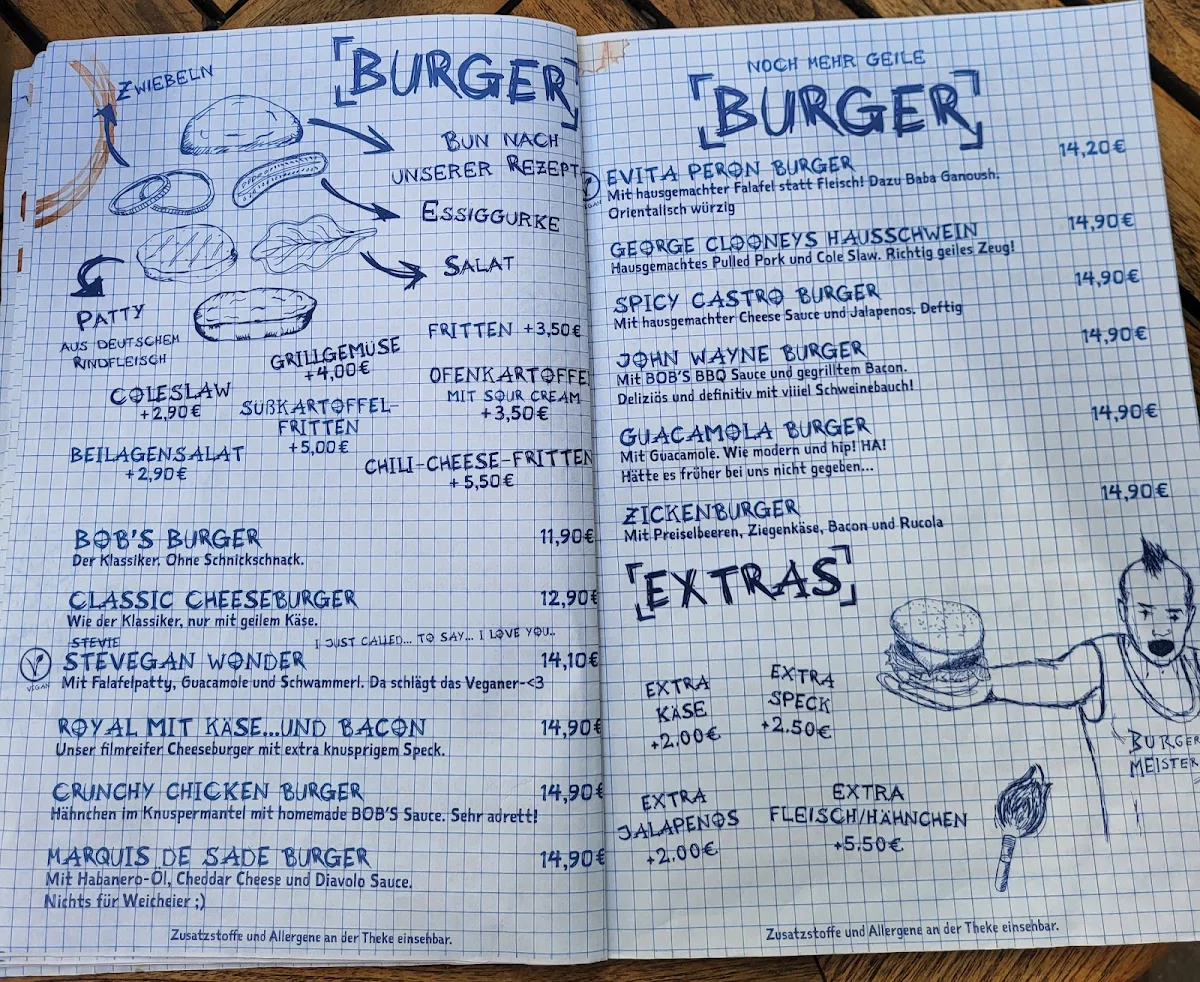 ZWIEBELN
BURGER
BUN NACH
UNSERER REZEPT
ESSIGGURKE
SALAT
PATTY
AUS DEUTSCHEM
RINDFLEISCH
FRITTEN +3,50€
GRILLGEMÜSE
+4,00€
OFENKARTOFFE
MIT SOUR CREAM
+3,50€
COLESLAW
+2,90€
SÜßKARTOFFEL-
FRITTEN
+5,00€
BEILAGENSALAT
+2,90€
CHILI-CHEESE-FRITTEN
+5,50€
BOB'S BURGER 11,90€
Der Klassiker. Ohne Schnickschnack.
CLASSIC CHEESEBURGER 12,90€
Wie der Klassiker, nur mit geilem Käse.
STEVIE I JUST CALLED... TO SAY... I LOVE YOU..
STEVEGAN WONDER 14,10€
VEGAN
Mit Falafelpatty, Guacamole und Schwammerl. Da schlägt das Veganer-<3
ROYAL MIT KÄSE...UND BACON 14,90€
Unser filmreifer Cheeseburger mit extra knusprigem Speck.
CRUNCHY CHICKEN BURGER 14,90€
Hähnchen im Knuspermantel mit homemade BOB'S Sauce. Sehr adrett!
MARQUIS DE SADE BURGER 14,90€
Mit Habanero-Öl, Cheddar Cheese und Diavolo Sauce.
Nichts für Weicheier ;)
Zusatzstoffe und Allergene an der Theke einsehbar.
NOCH MEHR GEILE
BURGER
EVITA PERON BURGER 14,20€
Mit hausgemachter Falafel statt Fleisch! Dazu Baba Ganoush.
Orientalisch würzig
GEORGE CLOONEYS HAUSSCHWEIN 14,90€
Hausgemachtes Pulled Pork und Cole Slaw. Richtig geiles Zeug!
SPICY CASTRO BURGER 14,90€
Mit hausgemachter Cheese Sauce und Jalapenos. Deftig
JOHN WAYNE BURGER 14,90€
Mit BOB'S BBQ Sauce und gegrilltem Bacon.
Deliziös und definitiv mit viiiel Schweinebauch!
GUACAMOLA BURGER 14,90€
Mit Guacamole. Wie modern und hip! HA!
Hätte es früher bei uns nicht gegeben...
ZICKENBURGER 14,90€
Mit Preiselbeeren, Ziegenkäse, Bacon und Rucola
EXTRAS
EXTRA
KÄSE
+2.00€
EXTRA
SPECK
+2.50€
EXTRA
JALAPENOS
+2.00€
EXTRA
FLEISCH/HÄHNCHEN
+5.50€
BURGER
MEISTER
Zusatzstoffe und Allergene an der Theke einsehbar.